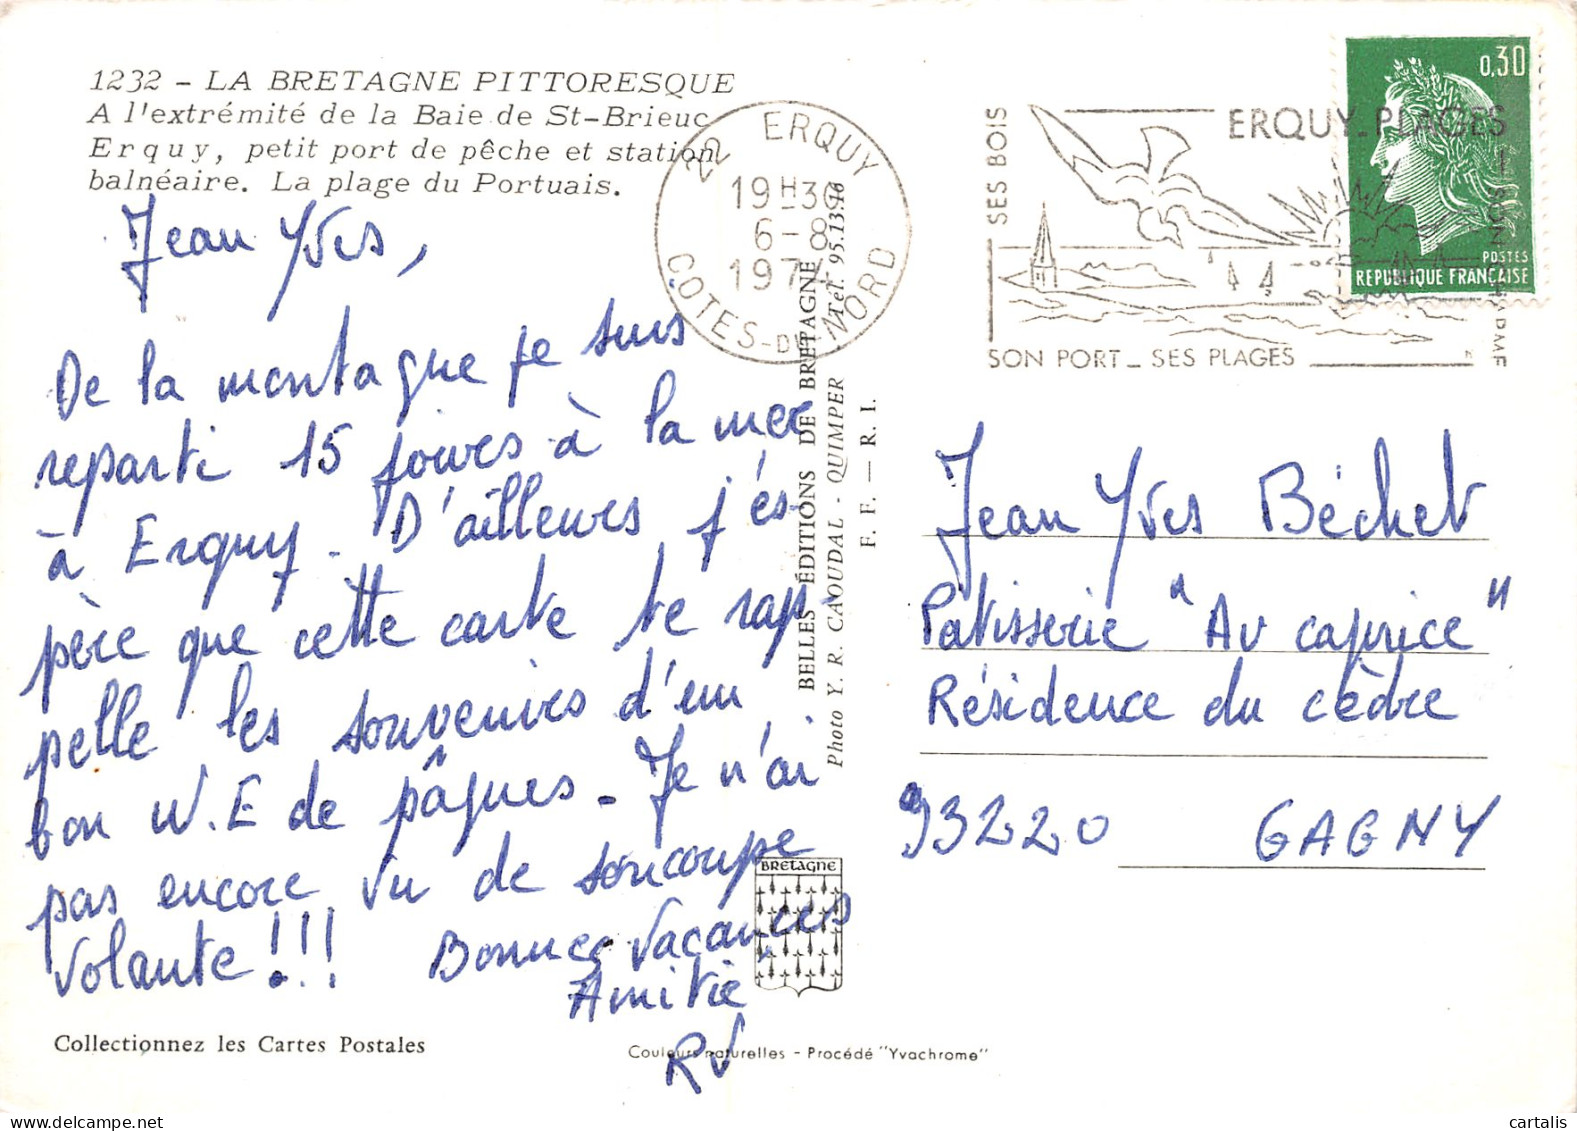 1232 - LA BRETAGNE PITTORESQUE
A l'extrémité de la Baie de St-Brieuc
Erquy, petit port de pêche et station
balnéaire. La plage du Portuais.
Jean Yves,
De la montagne je suis
reparti 15 jours à la mer
à Erquy. D'ailleurs j'és-
père que cette carte te rap-
pelle les souvenirs d'un
bon W.E de pâques. Je n'ai
pas encore vu de soucoupe
volante !!!
Bonnes Vacances
Amitié
RV
Collectionnez les Cartes Postales
22 ERQUY
19H30
6-8
1974
COTES-DU-NORD
BELLES ÉDITIONS DE BRETAGNE
Photo Y. R. CAOUDAL - QUIMPER - Tél. 95.13.
F. F. — R. I.
BRETAGNE
Couleurs naturelles - Procédé "Yvachrome"
SES BOIS
ERQUY-PLAGES
SON PORT _ SES PLAGES
SON
0,30
POSTES
REPUBLIQUE FRANÇAISE
Jean Yves Béchet
Patisserie "Au caprice"
Résidence du cèdre
93220 GAGNY
cartalis